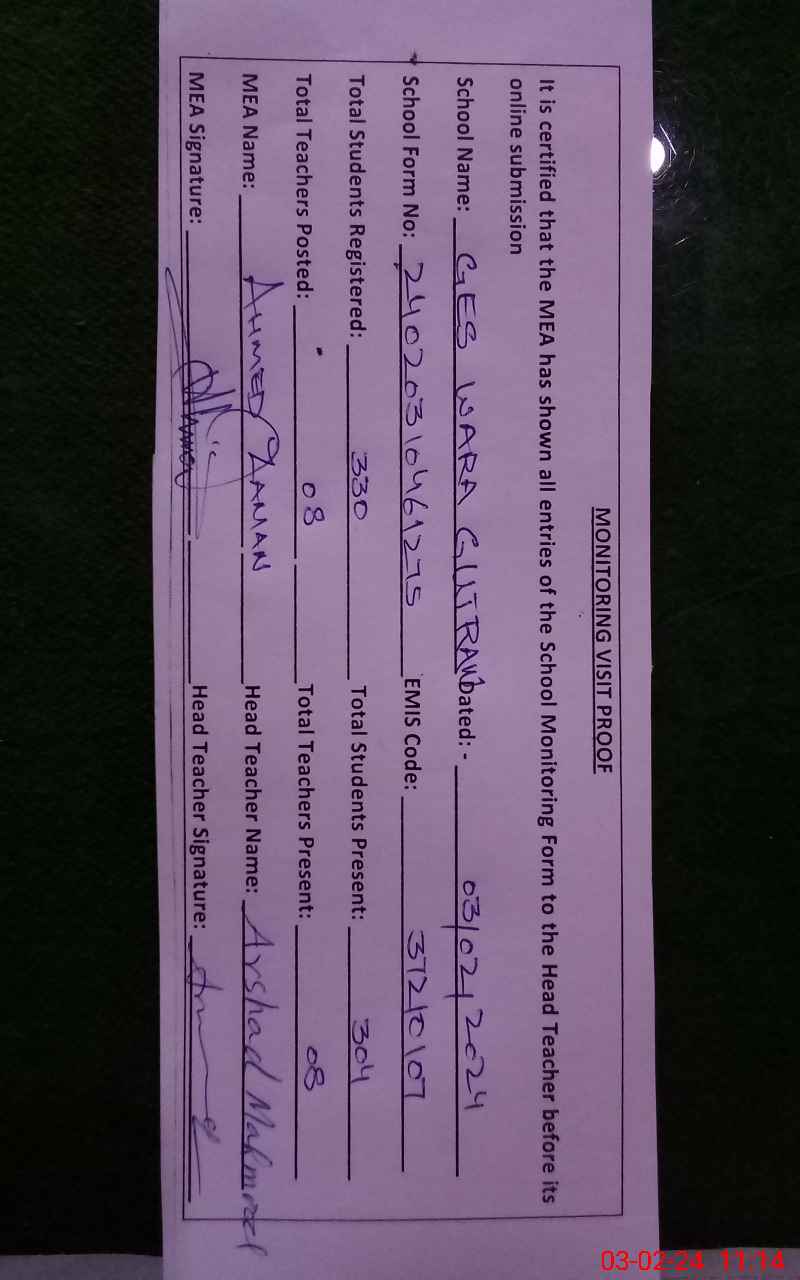 MONITORING VISIT PROOF
It is certified that the MEA has shown all entries of the School Monitoring Form to the Head Teacher before its
online submission
School Name: GES WARA GUJRAN Dated: - 03/02/2024
School Form No: 24020310461275 EMIS Code: 37210107
Total Students Registered: 330 Total Students Present: 304
Total Teachers Posted: 08 Total Teachers Present: 08
MEA Name: AHMED ZAMAN Head Teacher Name: Arshad Mahmood
MEA Signature: Head Teacher Signature:
03-02-24 11:14